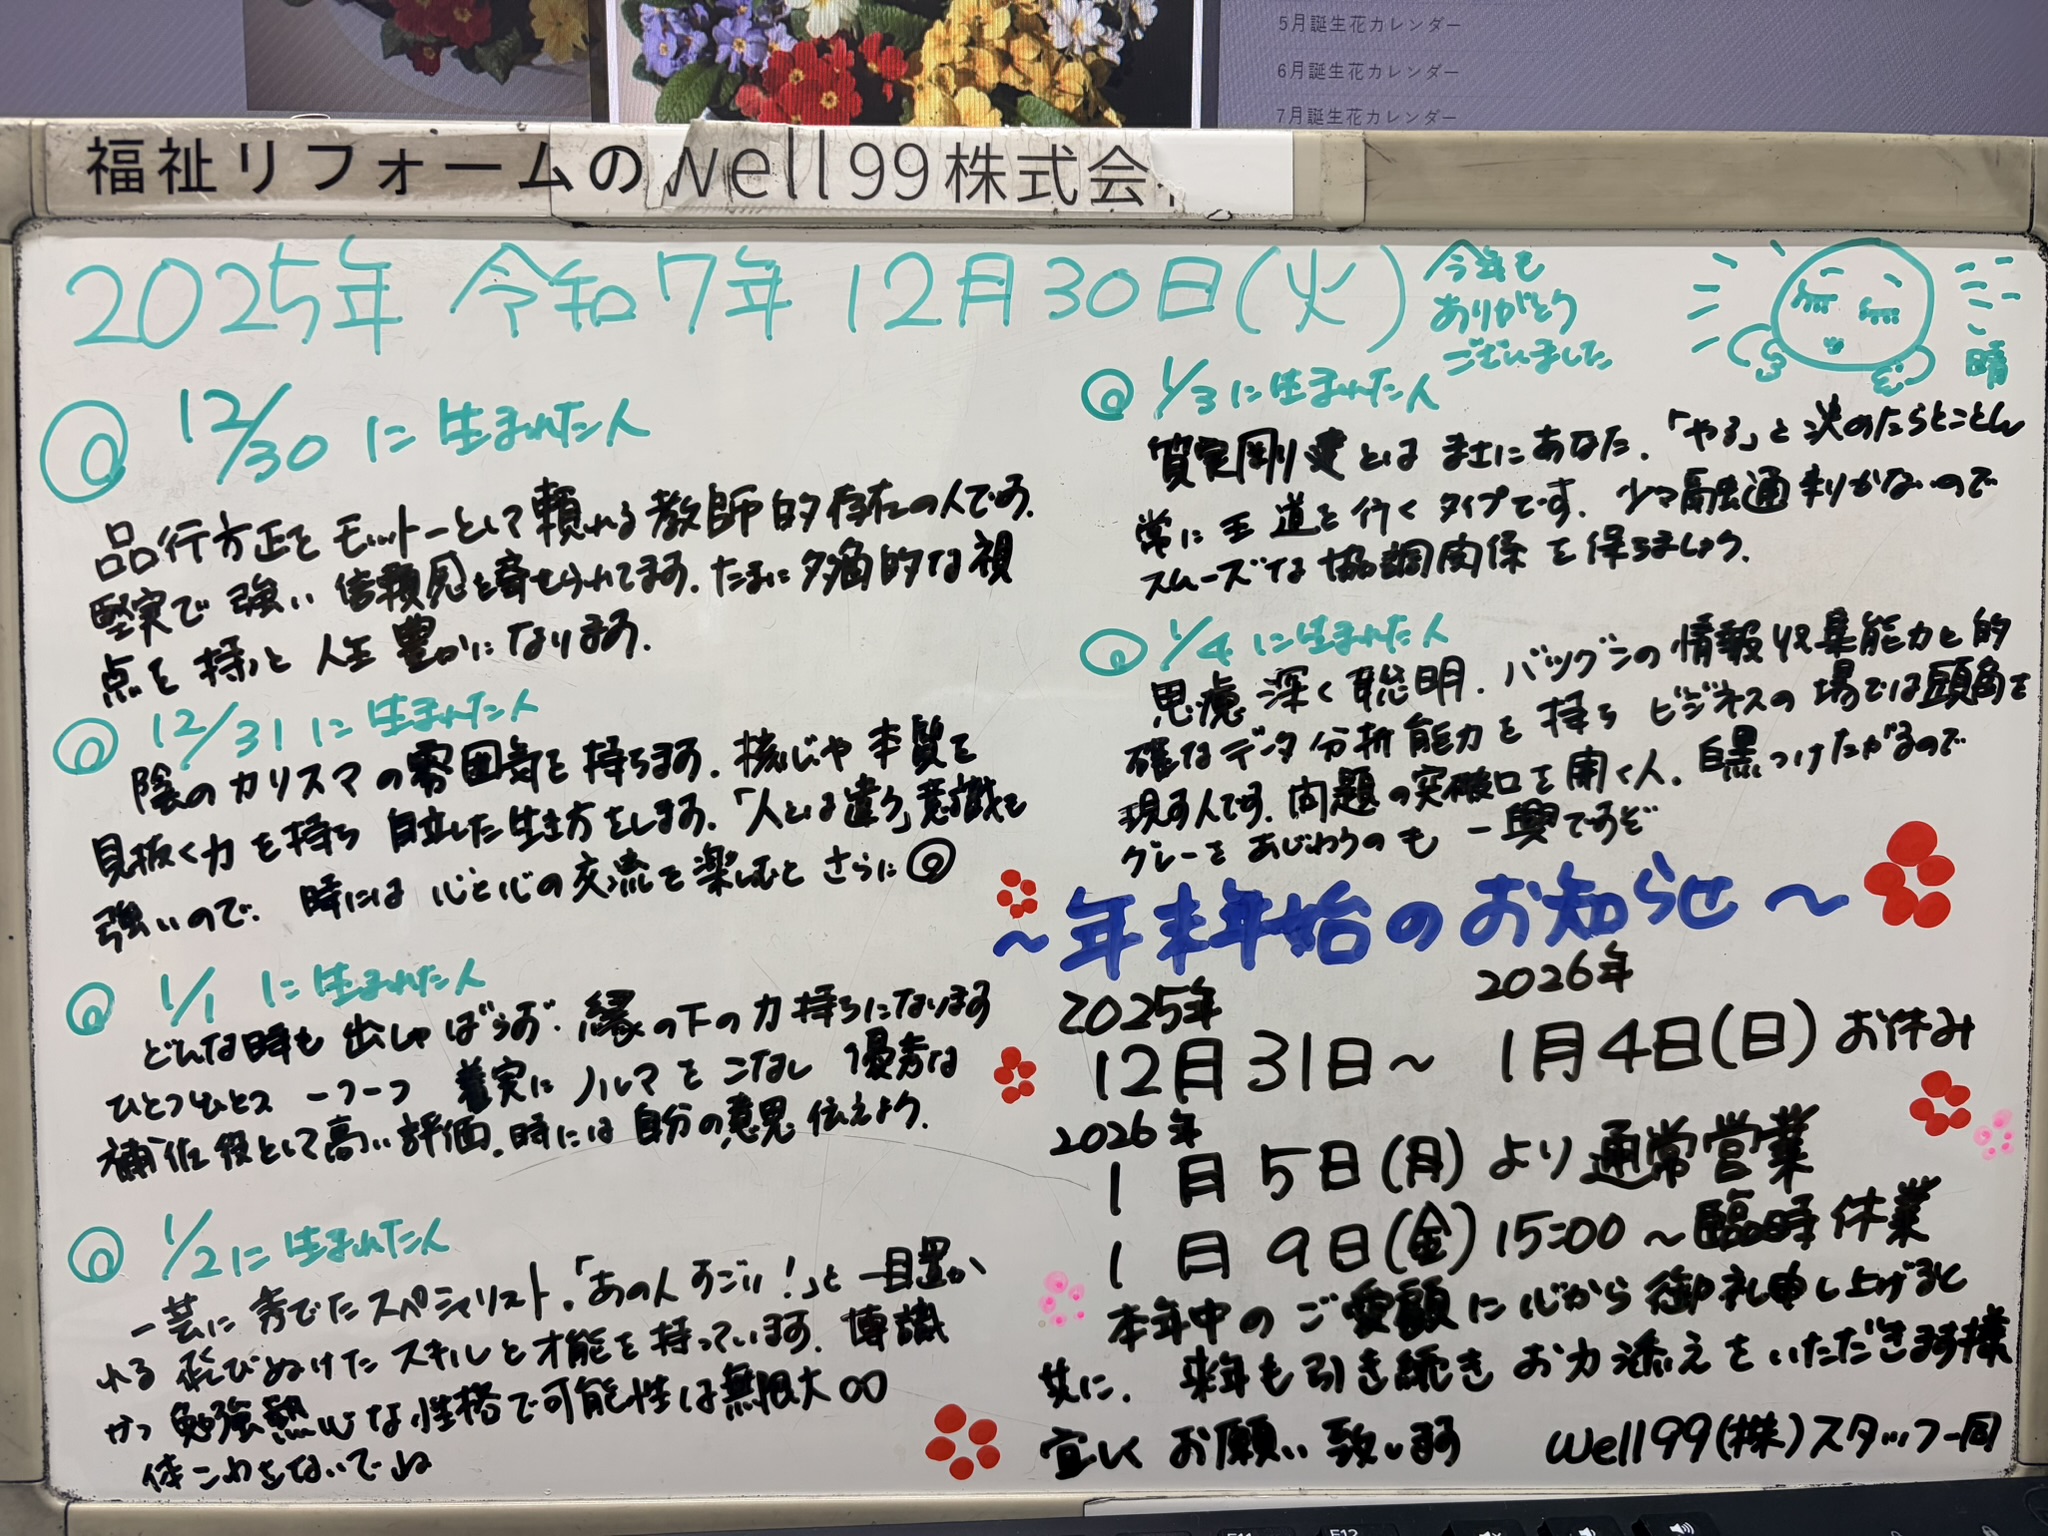 5月誕生花カレンダー
6月誕生花カレンダー
7月誕生花カレンダー
福祉リフォームのwell99株式会
2025年 令和7年 12月30日(火)
今年も
ありがとう
ございました
晴
◎ 12/30 に生まれた人
品行方正をモットーとして頼れる教師的存在の人です.
堅実で強い信頼感を寄せられてます.たまに多角的な視
点を持つと人生豊かになります.
◎ 12/31 に生まれた人
陰のカリスマの雰囲気を持ちます.核心や本質を
見抜く力を持ち 自立した生き方をします.「人とは違う」意識も
強いので. 時には心と心の交流を楽しむと さらに◎
◎ 1/1 に生まれた人
どんな時も 出しゃばらず. 縁の下の力持ちになります
ひとつひとつ 一つ一つ 着実にノルマをこなし 優秀な
補佐役として高い評価.時には自分の意思 伝えよう.
◎ 1/2に生まれた人
一芸に秀でたスペシャリスト.「あの人すごい!」と一目置か
れる 飛びぬけたスキルと才能を持っています. 博識
かつ 勉強熱心な性格で可能性は無限大∞
体こわさないでね
◎ 1/3に生まれた人
質実剛健とは まさにあなた.「やる」と決めたらとことん
常に王道を行くタイプです. 少々融通利かないので
スムーズな協調関係を保ちましょう.
◎ 1/4に生まれた人
思慮深く聡明. バツグンの情報収集能力と的
確なデータ分析能力を持ち ビジネスの場では頭角を
現す人です. 問題の突破口を開く人. 白黒つけたがるので
グレーをあじわうのも 一興ですぞ
～年末年始のお知らせ～
2025年 2026年
12月31日～ 1月4日(日) お休み
2026年
1月5日(月)より通常営業
1月9日(金)15:00～臨時休業
本年中のご愛顧に心から御礼申し上げると
共に. 来年も引き続きお力添えをいただきます様
宜しくお願い致します well99(株)スタッフ一同
F11 F12